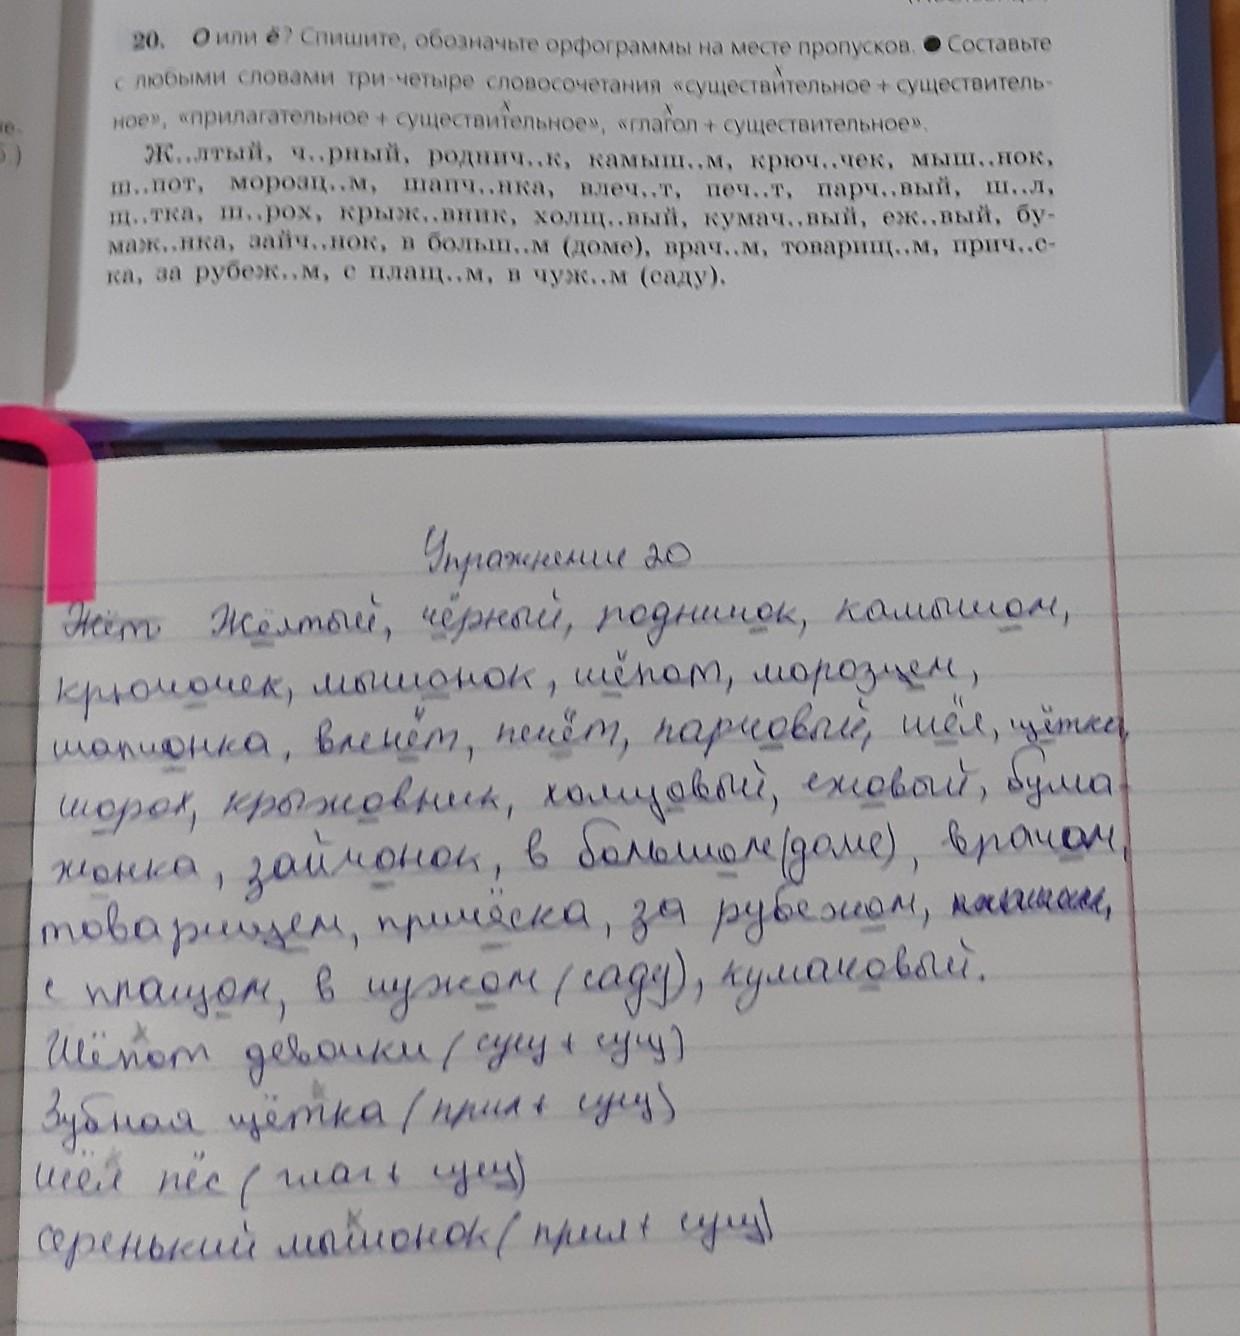 20. О или ё? Спишите, обозначьте орфограммы на месте пропусков. ● Составьте
с любыми словами три-четыре словосочетания «существительное + существитель-
ное», «прилагательное + существительное», «глагол + существительное».
Ж..лтый, ч..рный, роднич..к, камыш..м, крюч..чек, мыш..нок,
ш..пот, морозц..м, шапч..нка, влеч..т, печ..т, парч..вый, ш..л,
щ..тка, ш..рох, крыж..вник, холщ..вый, кумач..вый, еж..вый, бу-
маж..нка, зайч..нок, в больш..м (доме), врач..м, товарищ..м, прич..с-
ка, за рубеж..м, с плащ..м, в чуж..м (саду).
Упражнение 20
Жёлтый, чёрный, родничок, камышом,
крючочек, мышонок, шёпот, морозцем,
шапчонка, влечёт, печёт, парчовый, шёл, щётка,
шорох, крыжовник, холщовый, ежовый, бума
жонка, зайчонок, в большом (доме), врачом,
товарищем, причёска, за рубежом,
с плащом, в чужом (саду), кумачовый.
Шёпот девочки (сущ + сущ)
Зубная щётка (прил + сущ)
Шёл пёс (глаг + сущ)
серенький мышонок (прил + сущ)